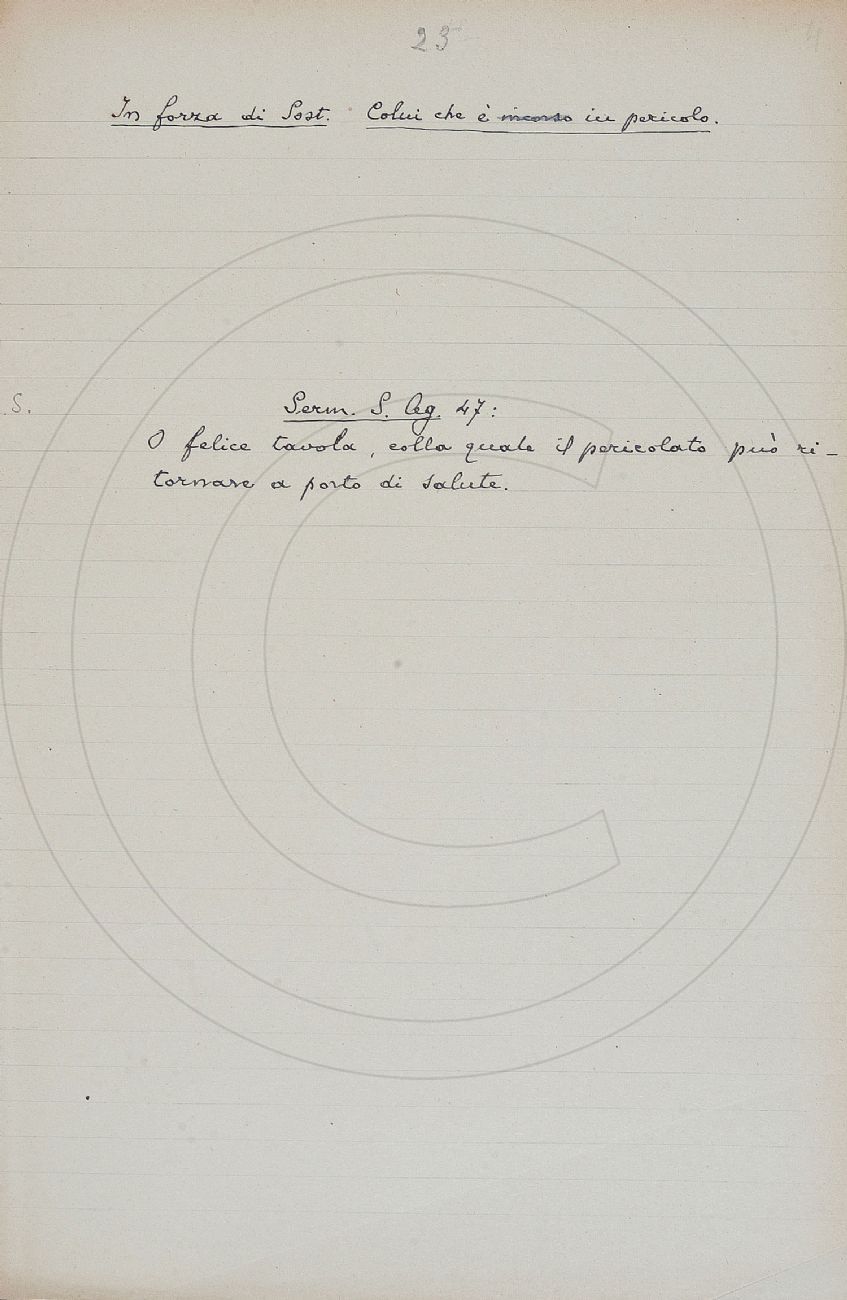 23
In forza di Sost. Colui che è incorso in pericolo.
S.
Serm. S. Ag. 47:
O felice tavola, colla quale il pericolato può ri-
tornare a porto di salute.